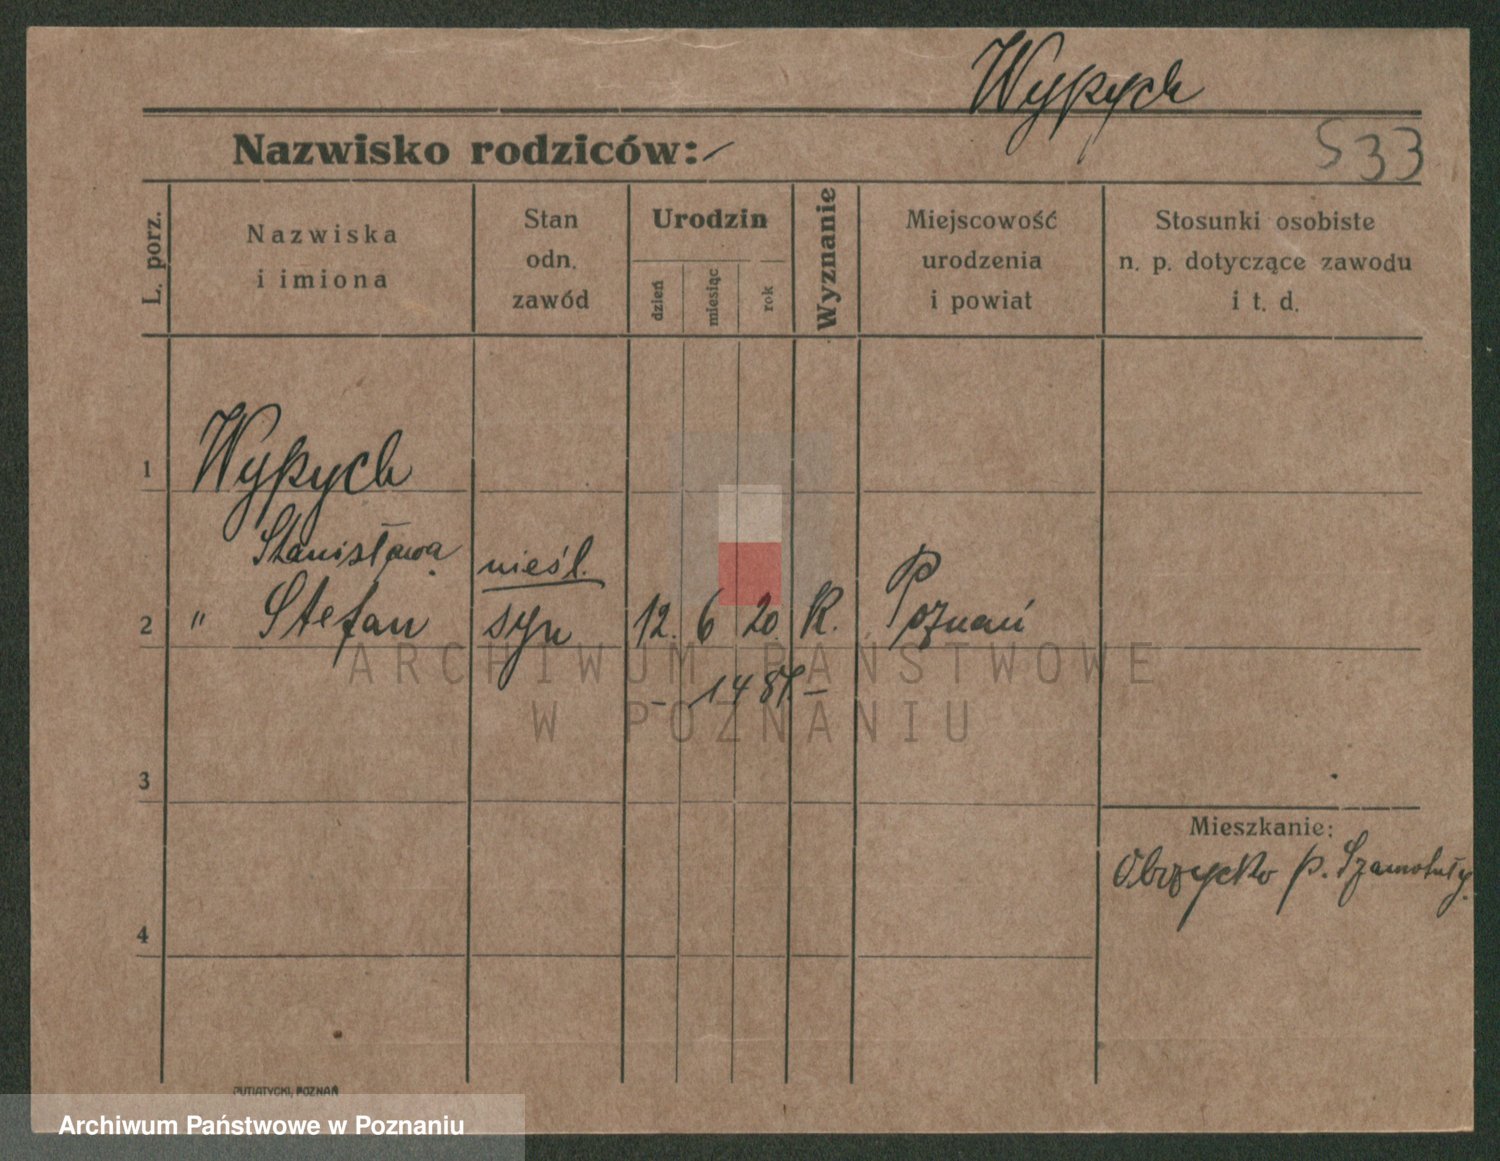 Wypych
Nazwisko rodziców: –
S33
L. porz.
Nazwiska
i imiona
Stan
odn.
zawód
Urodzin
dzień
miesiąc
rok
Wyznanie
Miejscowość
urodzenia
i powiat
Stosunki osobiste
n. p. dotyczące zawodu
i t. d.
1 Wypych
Stanisława nieśl.
2 " Stefan syn 12. 6 20. R. Poznań
ARCHIWUM PAŃSTWOWE
W POZNANIU
3
Mieszkanie:
Obrzycko p. Szamotuły.
4
PUTIATYCKI, POZNAŃ
Archiwum Państwowe w Poznaniu